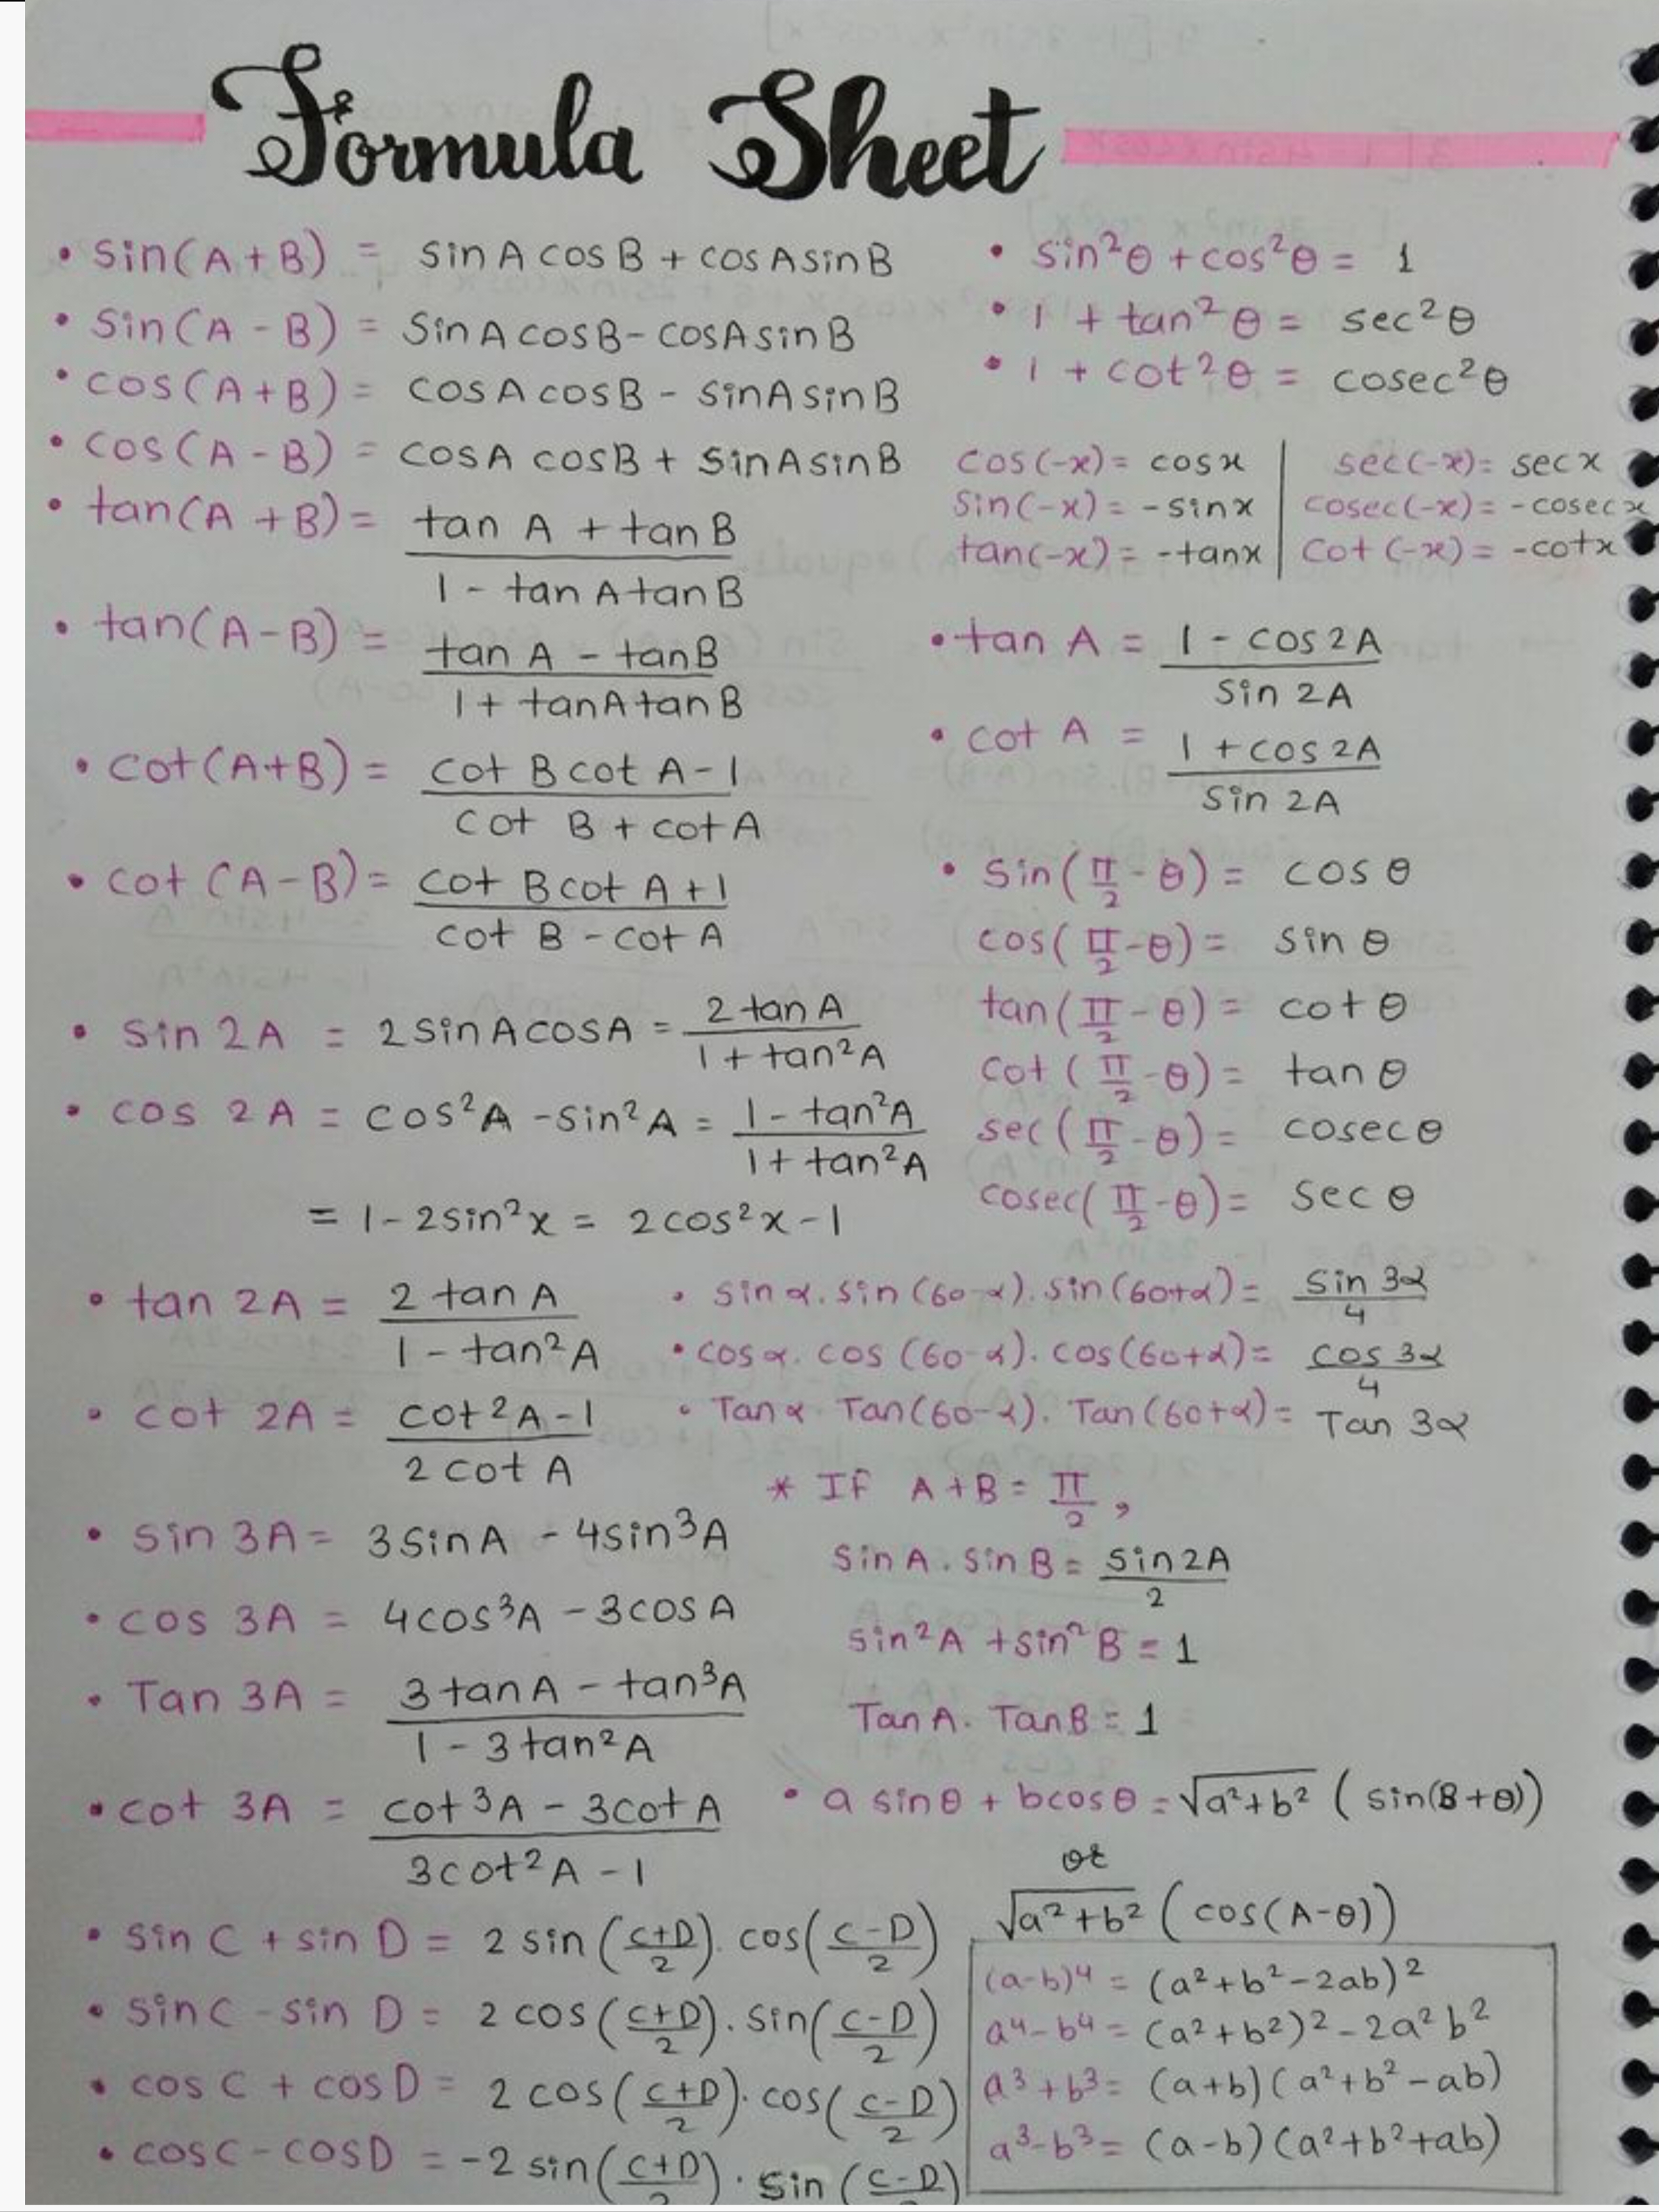 Formula Sheet
• sin(A+B) = sinA cosB + cosAsinB
• sin(A-B) = sinA cosB - cosAsinB
• cos(A+B) = cosA cosB - sinAsinB
• cos(A-B) = cosA cosB + sinAsinB
• tan(A+B) = tan A + tanB
1 - tanAtanB
• tan(A-B) = tan A - tanB
1 + tanAtanB
• cot(A+B) = cot B cot A-1
cot B + cotA
• cot (A-B) = cot B cot A+1
cot B - cot A
• sin 2A = 2sinAcosA = 2 tanA
1 + tan²A
• cos 2A = cos²A - sin²A = 1 - tan²A
1 + tan²A
= 1-2sin²x = 2cos²x-1
• tan 2A = 2 tanA
1 - tan²A
• cot 2A = cot²A-1
2 cot A
• sin 3A = 3sinA - 4sin³A
• cos 3A = 4cos³A - 3cosA
• Tan 3A = 3tanA - tan³A
1 - 3tan²A
• cot 3A = cot³A - 3cotA
3cot²A - 1
• sinC + sin D = 2 sin (C+D/2). cos(C-D/2)
• sinC - sin D = 2 cos (C+D/2). sin(C-D/2)
• cosC + cosD = 2 cos (C+D/2). cos(C-D/2)
• cosC - cosD = -2 sin (C+D/2) . sin (C-D/2)
• sin²θ + cos²θ = 1
• 1 + tan²θ = sec²θ
• 1 + cot²θ = cosec²θ
cos(-x) = cosx | sec(-x) = secx
sin(-x) = -sinx | cosec(-x) = -cosecx
tan(-x) = -tanx | cot(-x) = -cotx
• tan A = 1 - cos2A
sin 2A
• cot A = 1 + cos 2A
sin 2A
• sin(π/2-θ) = cosθ
cos(π/2-θ) = sinθ
tan(π/2-θ) = cotθ
cot(π/2-θ) = tanθ
sec(π/2-θ) = cosecθ
cosec(π/2-θ) = secθ
• sinα.sin(60-α).sin(60+α) = sin 3α
4
• cosα.cos(60-α).cos(60+α) = cos 3α
4
• Tanα Tan(60-α). Tan(60+α) = Tan 3α
* If A+B = π/2,
sinA.sinB = sin2A
2
sin²A + sin²B = 1
TanA. TanB = 1
• a sinθ + bcosθ = √a²+b² ( sin(B+θ))
or
√a²+b² (cos(A-θ))
(a-b)⁴ = (a²+b²-2ab)²
a⁴-b⁴ = (a²+b²)²-2a²b²
a³+b³ = (a+b)(a²+b²-ab)
a³-b³ = (a-b)(a²+b²+ab)